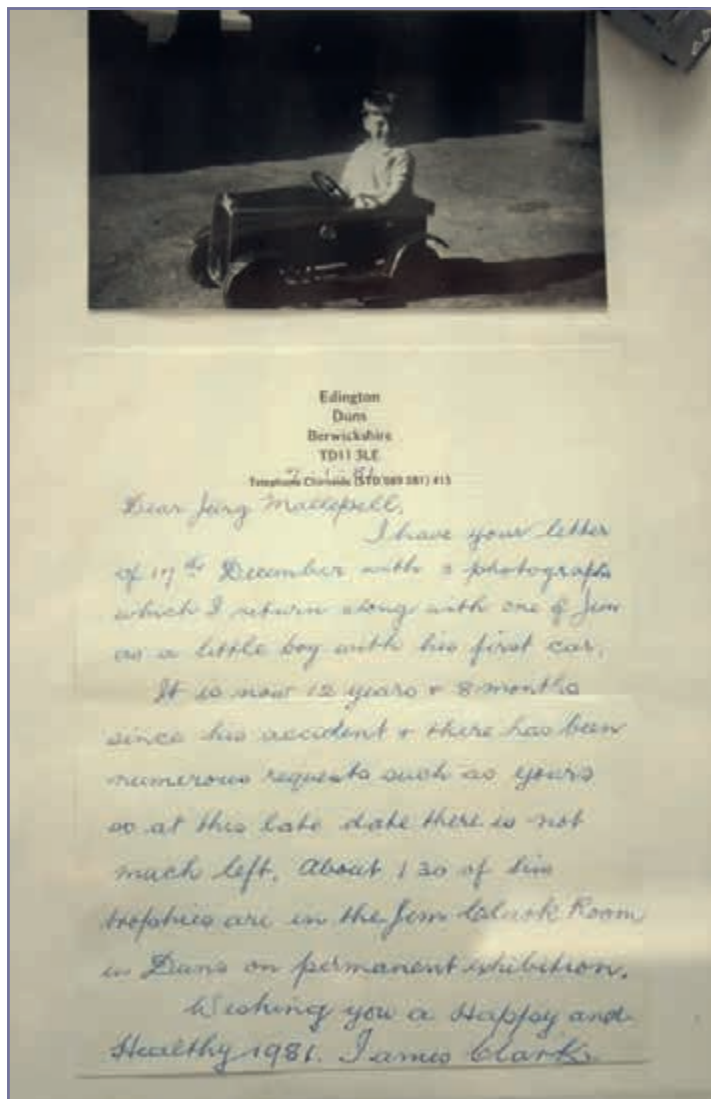 Edington
Duns
Berwickshire
TD11 3LE
Telephone Chirnside (STD 089 081) 415
Dear Jürg
I have your letter
of 17th December with a photograph
which I return along with one of Jim
as a little boy with his first car.
It is now 12 years + 8 months
since his accident + there has been
numerous requests such as yours
so at this late date there is not
much left. About 130 of his
trophies are in the Jim Clark Room
in Duns on permanent exhibition.
Wishing you a Happy and
Healthy 1981. James Clark.